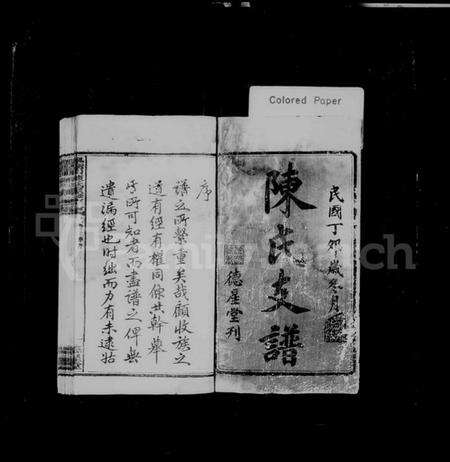 Colored Paper
民國丁卯歲冬月
陳氏支譜
德星堂刊
序
譜之所繫重矣哉顧收族之
道有經有權同條共幹舉
吾所可知者而盡譜之俾無
遺漏經也時絀而力有未逮姑
FamilySearch